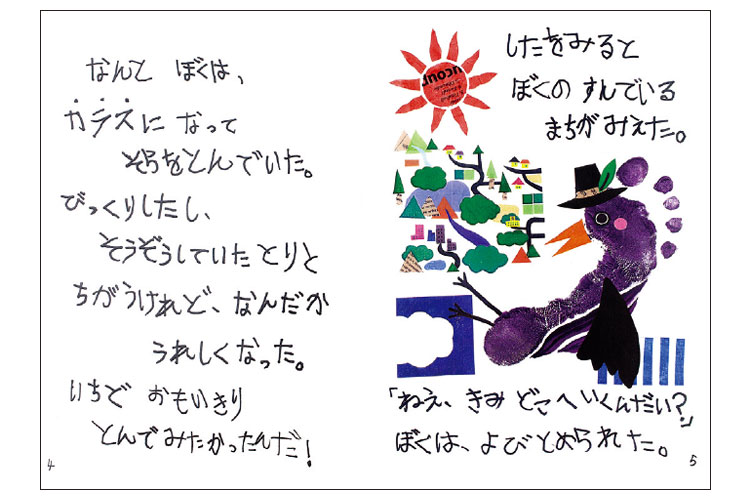 なんと ぼくは、
カラスに なって
そらをとんでいた。
びっくりしたし、
そうぞうしていた とりと
ちがうけれど、なんだか
うれしくなった。
いちど おもいきり
とんでみたかったんだ!
4
したをみると
ぼくの すんでいる
まちがみえた。
「ねえ、きみ どこへいくんだい?」
ぼくは、よびとめられた。
5